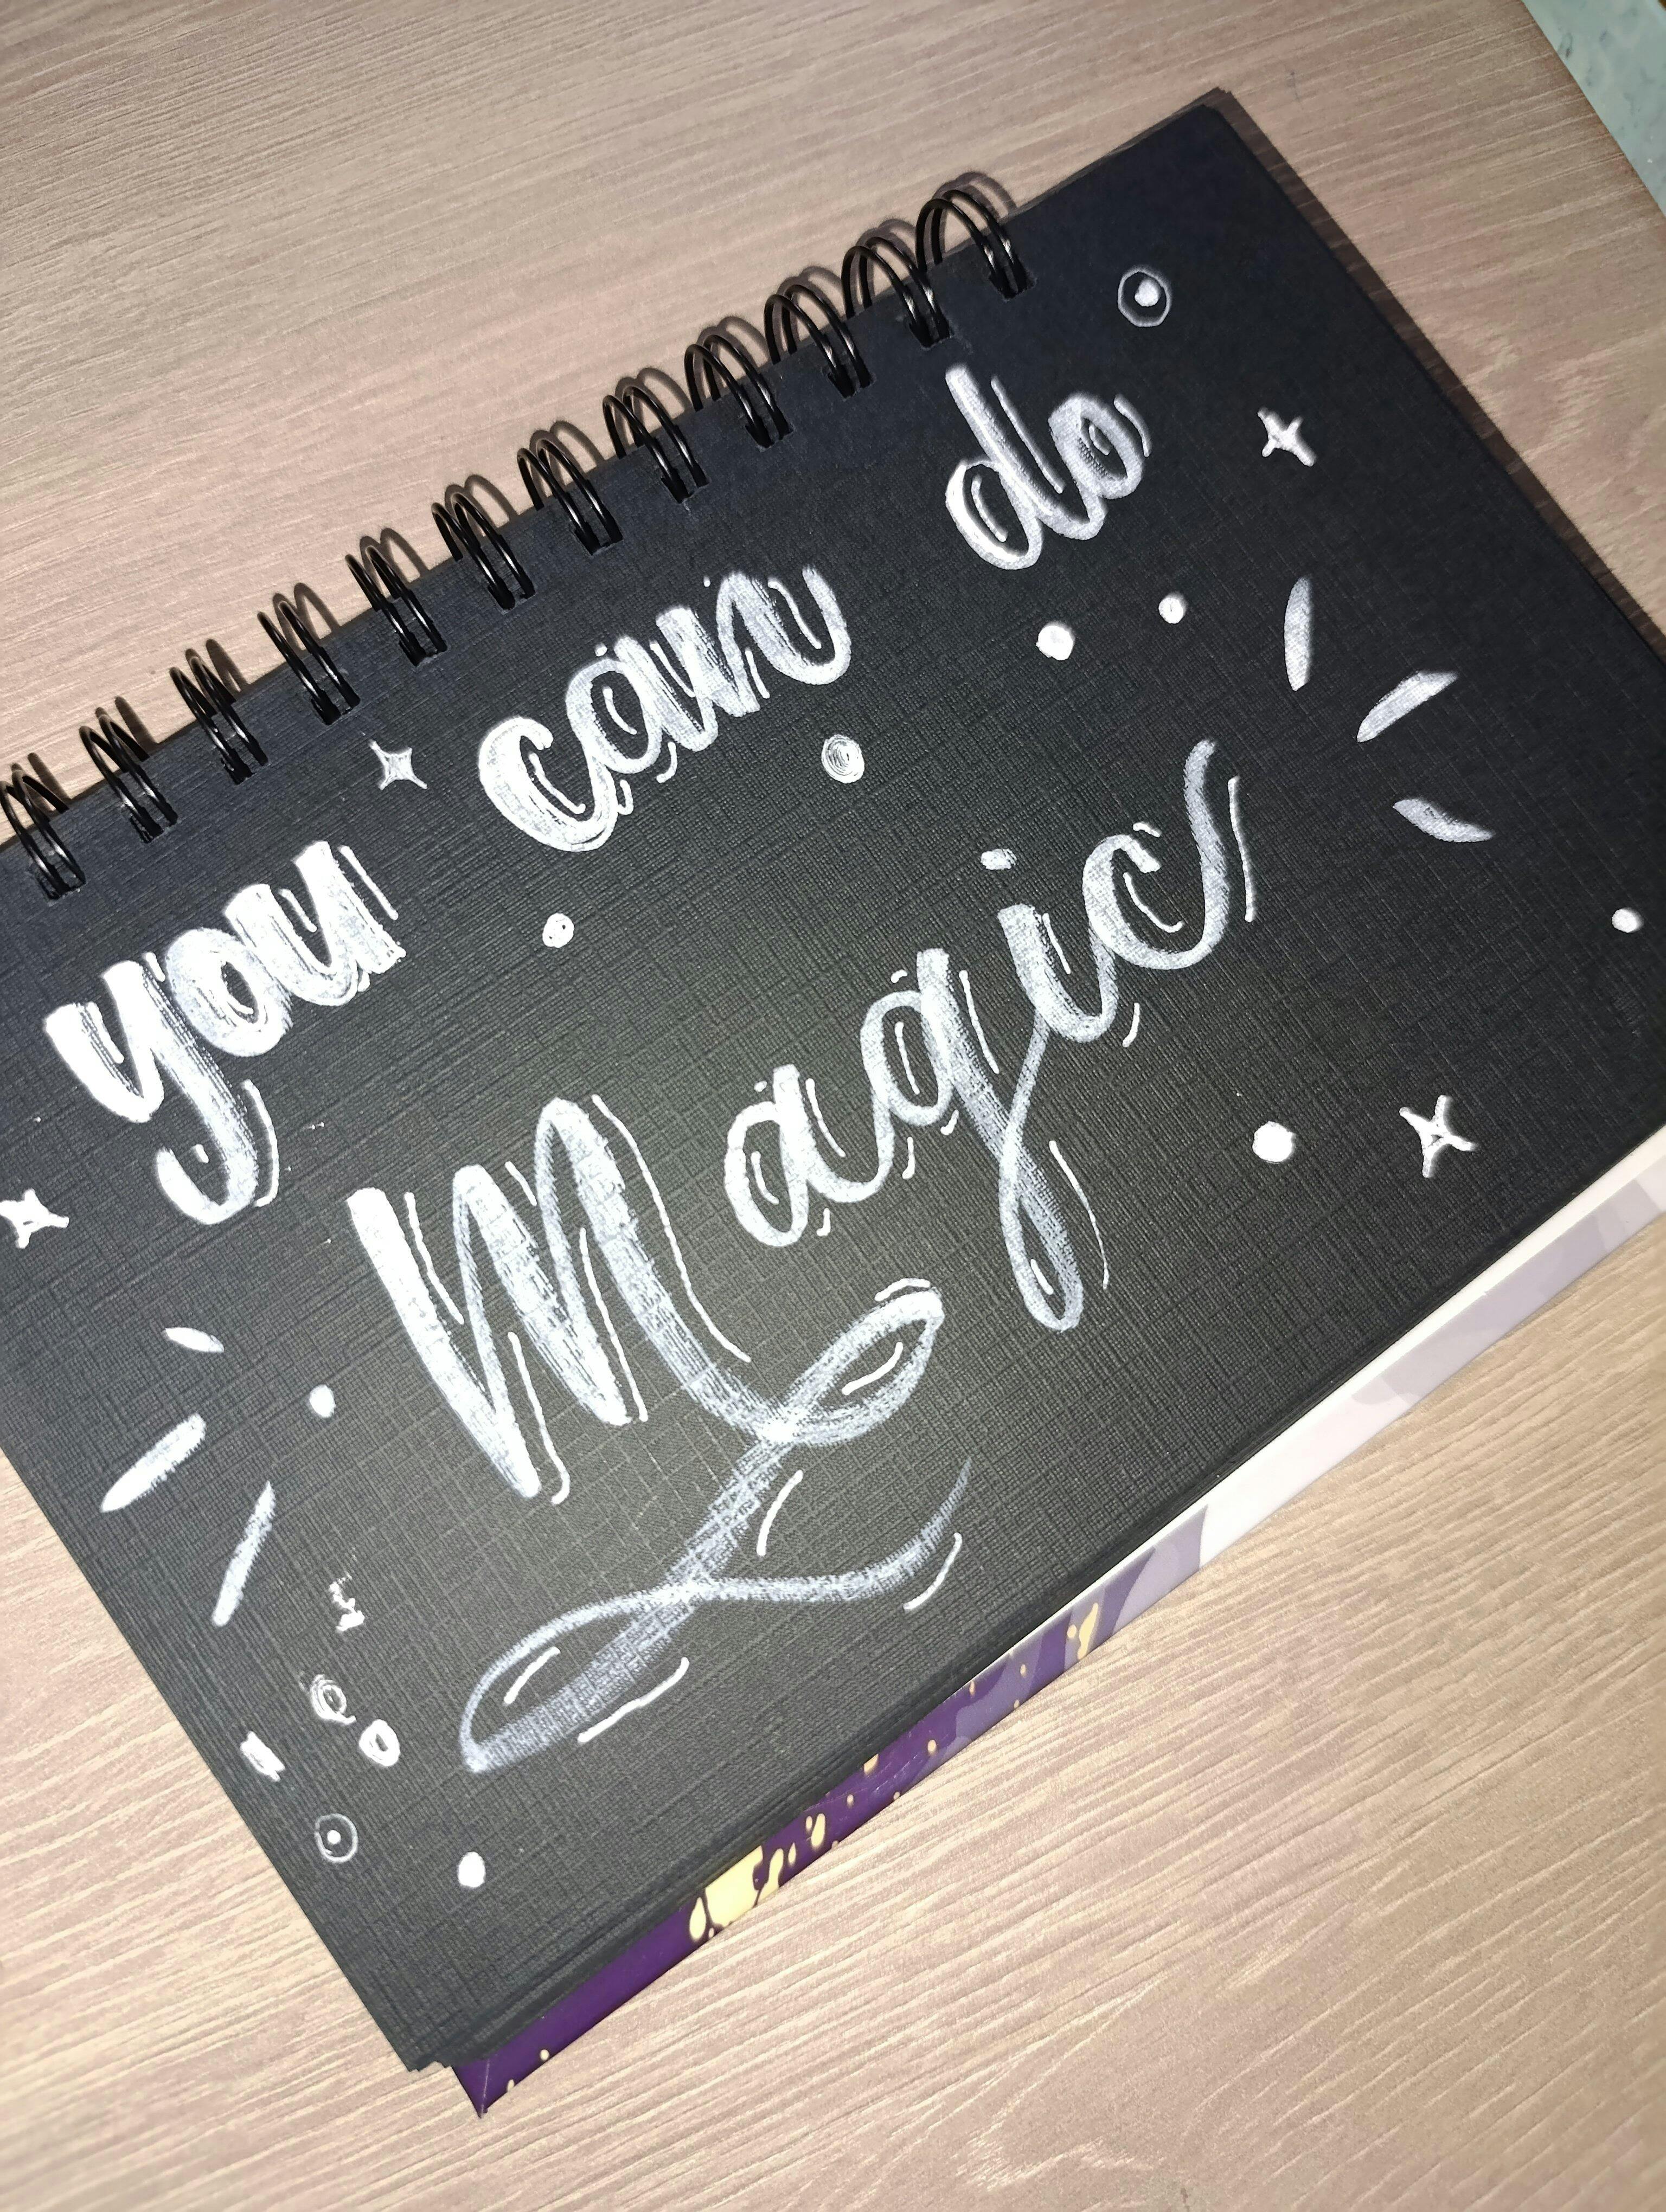 you can do
Magic